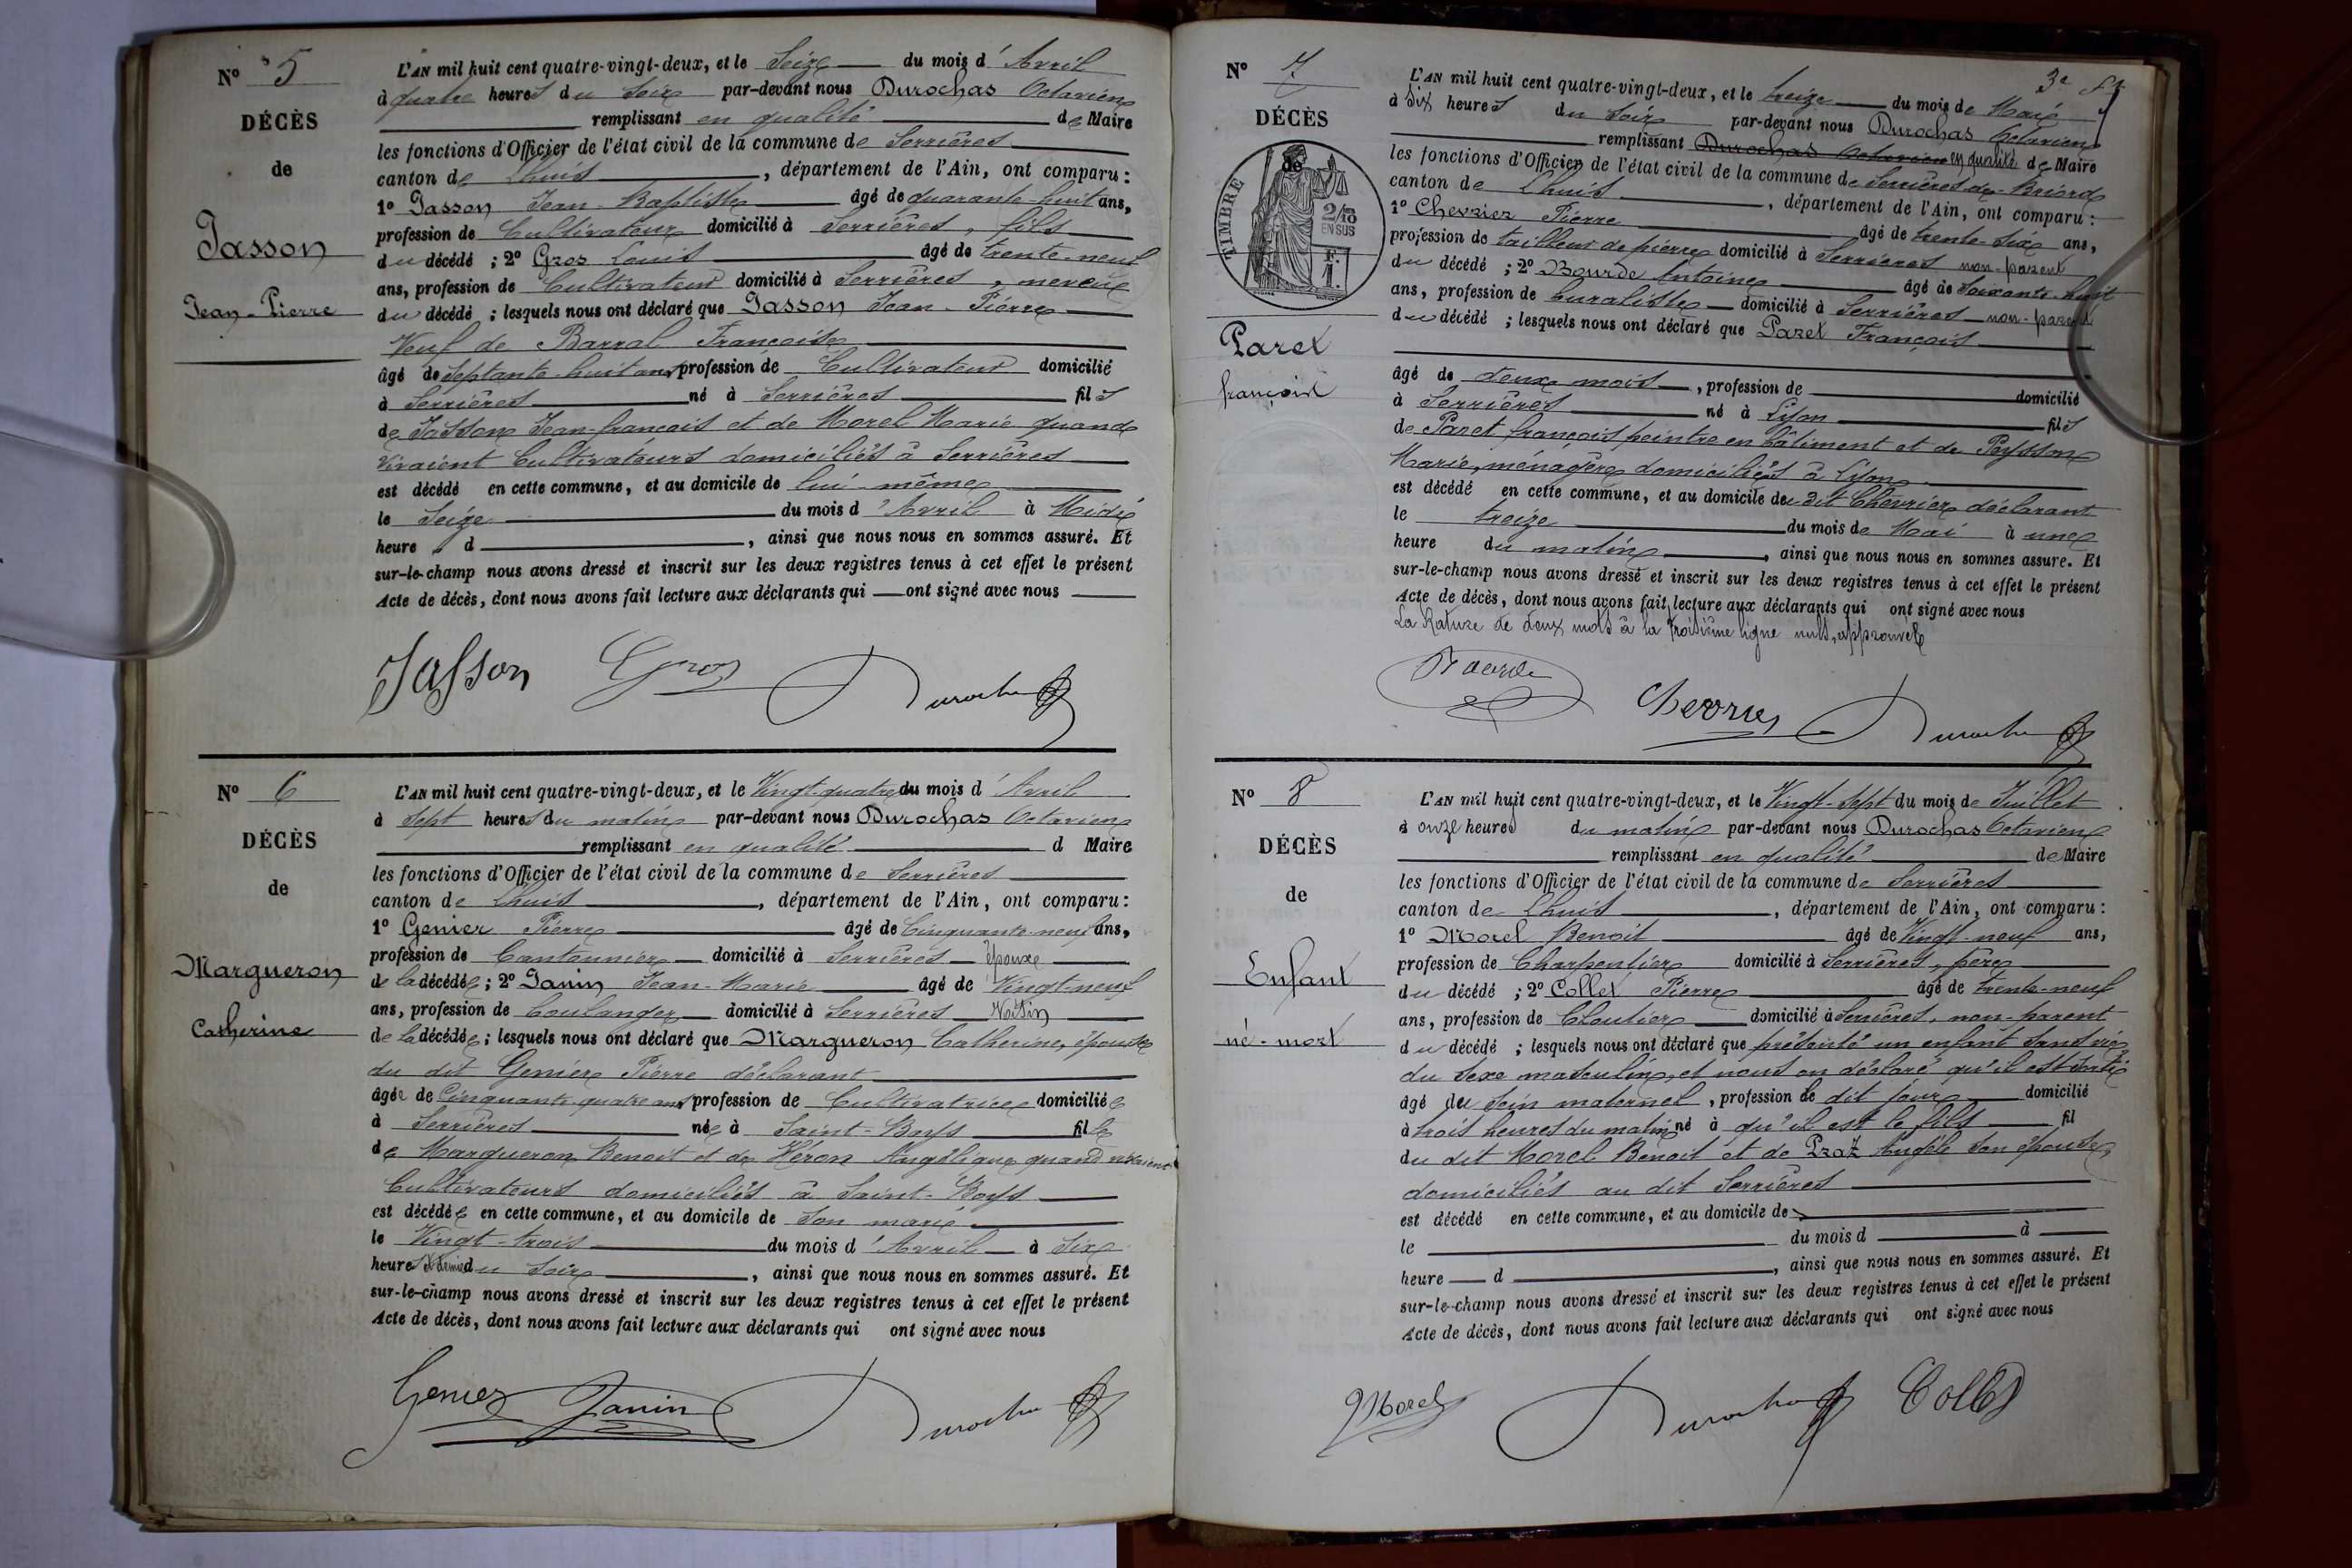 Nº 5
DÉCÈS
de
Jasson
Jean-Pierre
L'AN mil huit cent quatre-vingt-deux, et le Seize du mois d'Avril
à quatre heures du Soir par-devant nous Durochas Octavien
remplissant en qualité de Maire
les fonctions d'Officier de l'état civil de la commune de Serrières
canton de Lhuis, département de l'Ain, ont comparu :
1º Jasson Jean-Baptiste âgé de quarante-huit ans,
profession de Cultivateur domicilié à Serrières, fils
du décédé ; 2º Gros Louis âgé de trente-neuf
ans, profession de Cultivateur domicilié à Serrières, neveu
du décédé ; lesquels nous ont déclaré que Jasson Jean-Pierre
Veuf de Barral Françoise
âgé de Septante-huit ans profession de Cultivateur domicilié
à Serrières né à Serrières fils
de Jasson Jean-françois et de Morel Marie quand
vivaient Cultivateurs domiciliés à Serrières
est décédé en cette commune, et au domicile de lui-même
le Seize du mois d'Avril à Midi
heure d , ainsi que nous nous en sommes assuré. Et
sur-le-champ nous avons dressé et inscrit sur les deux registres tenus à cet effet le présent
Acte de décès, dont nous avons fait lecture aux déclarants qui ont signé avec nous
Jasson Gros Durochas
Nº 6
DÉCÈS
de
Margueron
Catherine
L'AN mil huit cent quatre-vingt-deux, et le Vingt-quatre du mois d'Avril
à Sept heures du matin par-devant nous Durochas Octavien
remplissant en qualité d Maire
les fonctions d'Officier de l'état civil de la commune de Serrières
canton de Lhuis, département de l'Ain, ont comparu :
1º Genier Pierre âgé de Cinquante-neuf ans,
profession de Cantonnier domicilié à Serrières époux
de la décédée ; 2º Janin Jean-Marie âgé de Vingt-neuf
ans, profession de boulanger domicilié à Serrières Voisin
de la décédée ; lesquels nous ont déclaré que Margueron Catherine, épouse
du dit Genier Pierre déclarant
âgée de Cinquante quatre ans profession de Cultivatrice domiciliée
à Serrières née à Saint-Boys fille
de Margueron Benoit et de Héron Angélique quand vivaient
Cultivateurs domiciliés à Saint-Boys
est décédée en cette commune, et au domicile de Son mari
le Vingt-trois du mois d'Avril à Six
heures et demie du Soir, ainsi que nous nous en sommes assuré. Et
sur-le-champ nous avons dressé et inscrit sur les deux registres tenus à cet effet le présent
Acte de décès, dont nous avons fait lecture aux déclarants qui ont signé avec nous
Genier Janin Durochas
3e
Nº 7
DÉCÈS
de
TIMBRE
2/10
EN SUS
F.
1.
Paret
françois
L'AN mil huit cent quatre-vingt-deux, et le treize du mois de Mai
à Six heures du Soir par-devant nous Durochas Octavien
remplissant Durochas Octavien en qualité de Maire
les fonctions d'Officier de l'état civil de la commune de Serrières de Briord
canton de Lhuis, département de l'Ain, ont comparu :
1º Chevrier Pierre âgé de trente-Six ans,
profession de tailleur de pierre domicilié à Serrières non-parent
du décédé ; 2º Bourde Antoine âgé de Soixante-huit
ans, profession de buraliste domicilié à Serrières non-parent
du décédé ; lesquels nous ont déclaré que Paret François
âgé de deux mois, profession de domicilié
à Serrières né à Lyon fils
de Paret françois peintre en bâtiment et de Peysson
Marie, ménagère domiciliés à Lyon
est décédé en cette commune, et au domicile du dit Chevrier déclarant
le treize du mois de Mai à une
heure du matin, ainsi que nous nous en sommes assuré. Et
sur-le-champ nous avons dressé et inscrit sur les deux registres tenus à cet effet le présent
Acte de décès, dont nous avons fait lecture aux déclarants qui ont signé avec nous
La Rature de deux mots à la troisième ligne nuls, approuvé
Bourde Chevrier Durochas
Nº 8
DÉCÈS
de
Enfant
né-mort
L'AN mil huit cent quatre-vingt-deux, et le Vingt-Sept du mois de Juillet
à onze heures du matin par-devant nous Durochas Octavien
remplissant en qualité de Maire
les fonctions d'Officier de l'état civil de la commune de Serrières
canton de Lhuis, département de l'Ain, ont comparu :
1º Morel Benoit âgé de Vingt-neuf ans,
profession de Charpentier domicilié à Serrières, père
du décédé ; 2º Collet Pierre âgé de trente-neuf
ans, profession de Cloutier domicilié à Serrières, non-parent
du décédé ; lesquels nous ont déclaré que présenté un enfant Sans vie
du Sexe masculin, et nous on déclaré qu'il est Sorti
âgé du Sein maternel, profession de dit jour domicilié
à trois heures du matin né à qu'il est le fils fil
du dit Morel Benoit et de Praz Angèle Son épouse,
domiciliés au dit Serrières
est décédé en cette commune, et au domicile de
le du mois d à
heure d , ainsi que nous nous en sommes assuré. Et
sur-le-champ nous avons dressé et inscrit sur les deux registres tenus à cet effet le présent
Acte de décès, dont nous avons fait lecture aux déclarants qui ont signé avec nous
Morel Durochas Collet